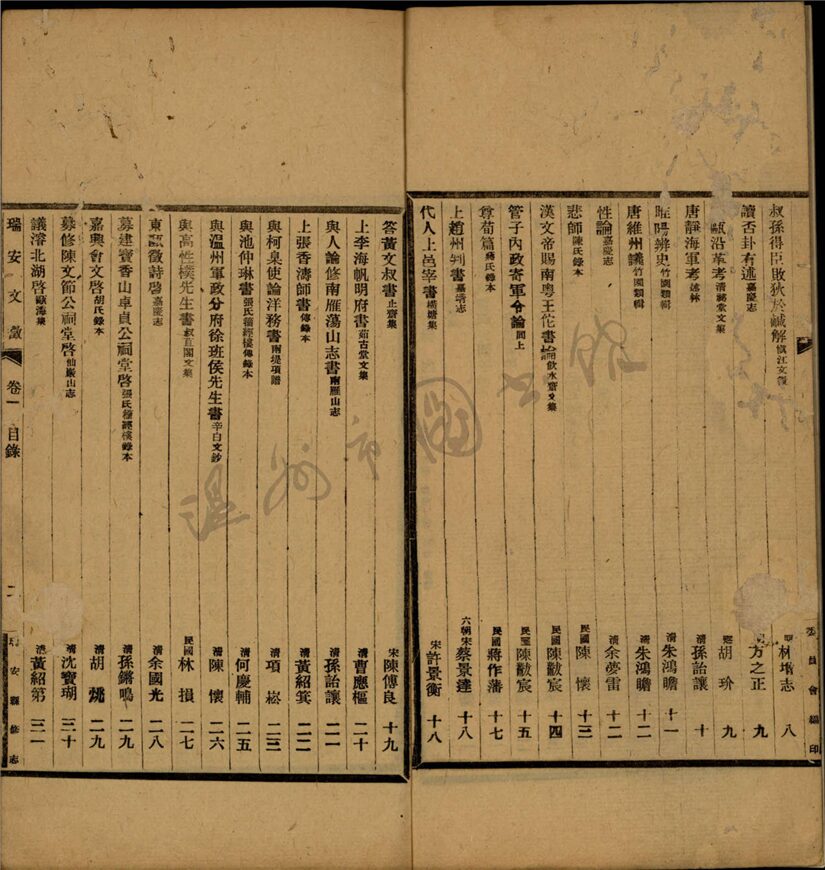 叔孫得臣敗狄於鹹解 慎江文徵 明 林增志 八
讀否卦有述 嘉慶志 方之正 九
甌沿革考 清綺堂文集 清 胡玠 九
唐靜海軍考 述林 清 孫詒讓 十
睢陽辨史 竹園類輯 清 朱鴻瞻 十一
唐維州議 竹園類輯 清 朱鴻瞻 十二
性論 嘉慶志 清 余夢雷 十二
悲師 陳氏錄本 民國 陳懷 十三
漢文帝賜南粤王佗書始 飲水齋文集 民國 陳黻宸 十四
管子內政寄軍令論 同上 民國 陳黻宸 十五
尊荀篇 蔣氏錄本 民國 蔣作藩 十七
上趙州判書 嘉靖志 六朝宋 蔡景達 十八
代人上邑宰書 橫塘集 宋 許景衡 十八
委員會編印
答黃文叔書 止齋集 宋 陳傅良 十九
上李海帆明府書 茹古堂文集 清 曹應樞 二十
與人論修南雁蕩山志書 南雁山志 清 孫詒讓 二一
上張香濤師書 傳錄本 清 黃紹箕 二二
與柯臬使論洋務書 南堤項譜 清 項崧 二三
與池仲琳書 張氏穜經樓傳錄本 清 何慶輔 二五
與溫州軍政分府徐班侯先生書 辛白文鈔 清 陳懷 二六
與高性樸先生書 叔苴閣文集 民國 林損 二七
東甌徵詩啓 嘉慶志 清 余國光 二八
募建寶香山卓貞公祠堂啓 張氏穜經樓錄本 清 孫鏘鳴 二九
嘉興會文啓 胡氏錄本 清 胡 二九
募修陳文節公祠堂啓 仙巖山志 清 沈寶瑚 三十
議濬北湖啓 甌海集 清 黃紹第 三一
瑞安文徵 卷一 目錄 二 瑞安縣修志
溫州市圖書館